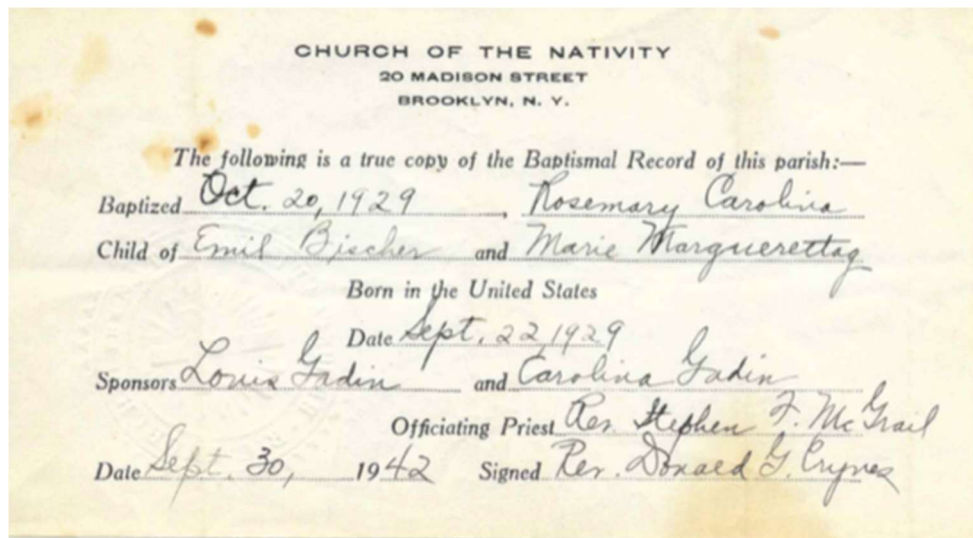 CHURCH OF THE NATIVITY
20 MADISON STREET
BROOKLYN, N. Y.
The following is a true copy of the Baptismal Record of this parish:—
Baptized Oct. 20, 1929, Rosemary Carolina
Child of Emil Bischer and Marie
Born in the United States
Date Sept. 22, 1929
Sponsors Louis Gadin and Carolina Gadin
Officiating Priest Rev. Stephen F. McGrail
Date Sept. 30, 1942 Signed Rev. Donald G.